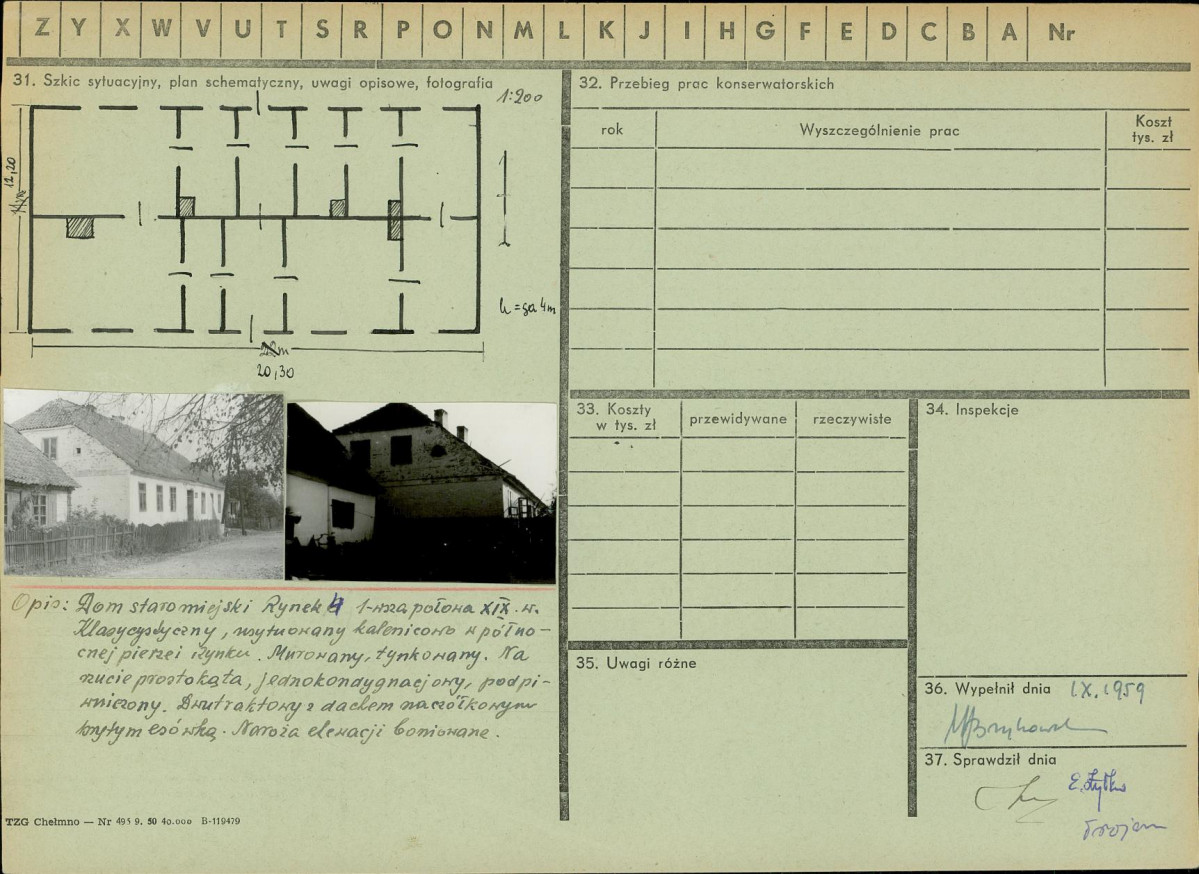 Z Y X W V U T S R P O N M L K J I H G F E D C B A Nr
31. Szkic sytuacyjny, plan schematyczny, uwagi opisowe, fotografia
1:200
12,20
h = ga 4m
22m
20,30
Opis: Dom staromiejski Rynek 4 1-wsza połowa XIX. w.
Klasycystyczny, usytuowany kalenicowo w półno-
cnej pierzei rynku. Murowany, tynkowany. Na
rzucie prostokąta, jednokondygnacjowy, podpi-
wniczony. Dwutraktowy z dachem naczółkowym
krytym esówką. Naroża elewacji boniowane.
TZG Chełmno — Nr 495 9. 50 40.000 B-119479
32. Przebieg prac konserwatorskich
rok
Wyszczególnienie prac
Koszt
tys. zł
33. Koszty
w tys. zł
przewidywane
rzeczywiste
34. Inspekcje
35. Uwagi różne
36. Wypełnił dnia IX.1959
37. Sprawdził dnia